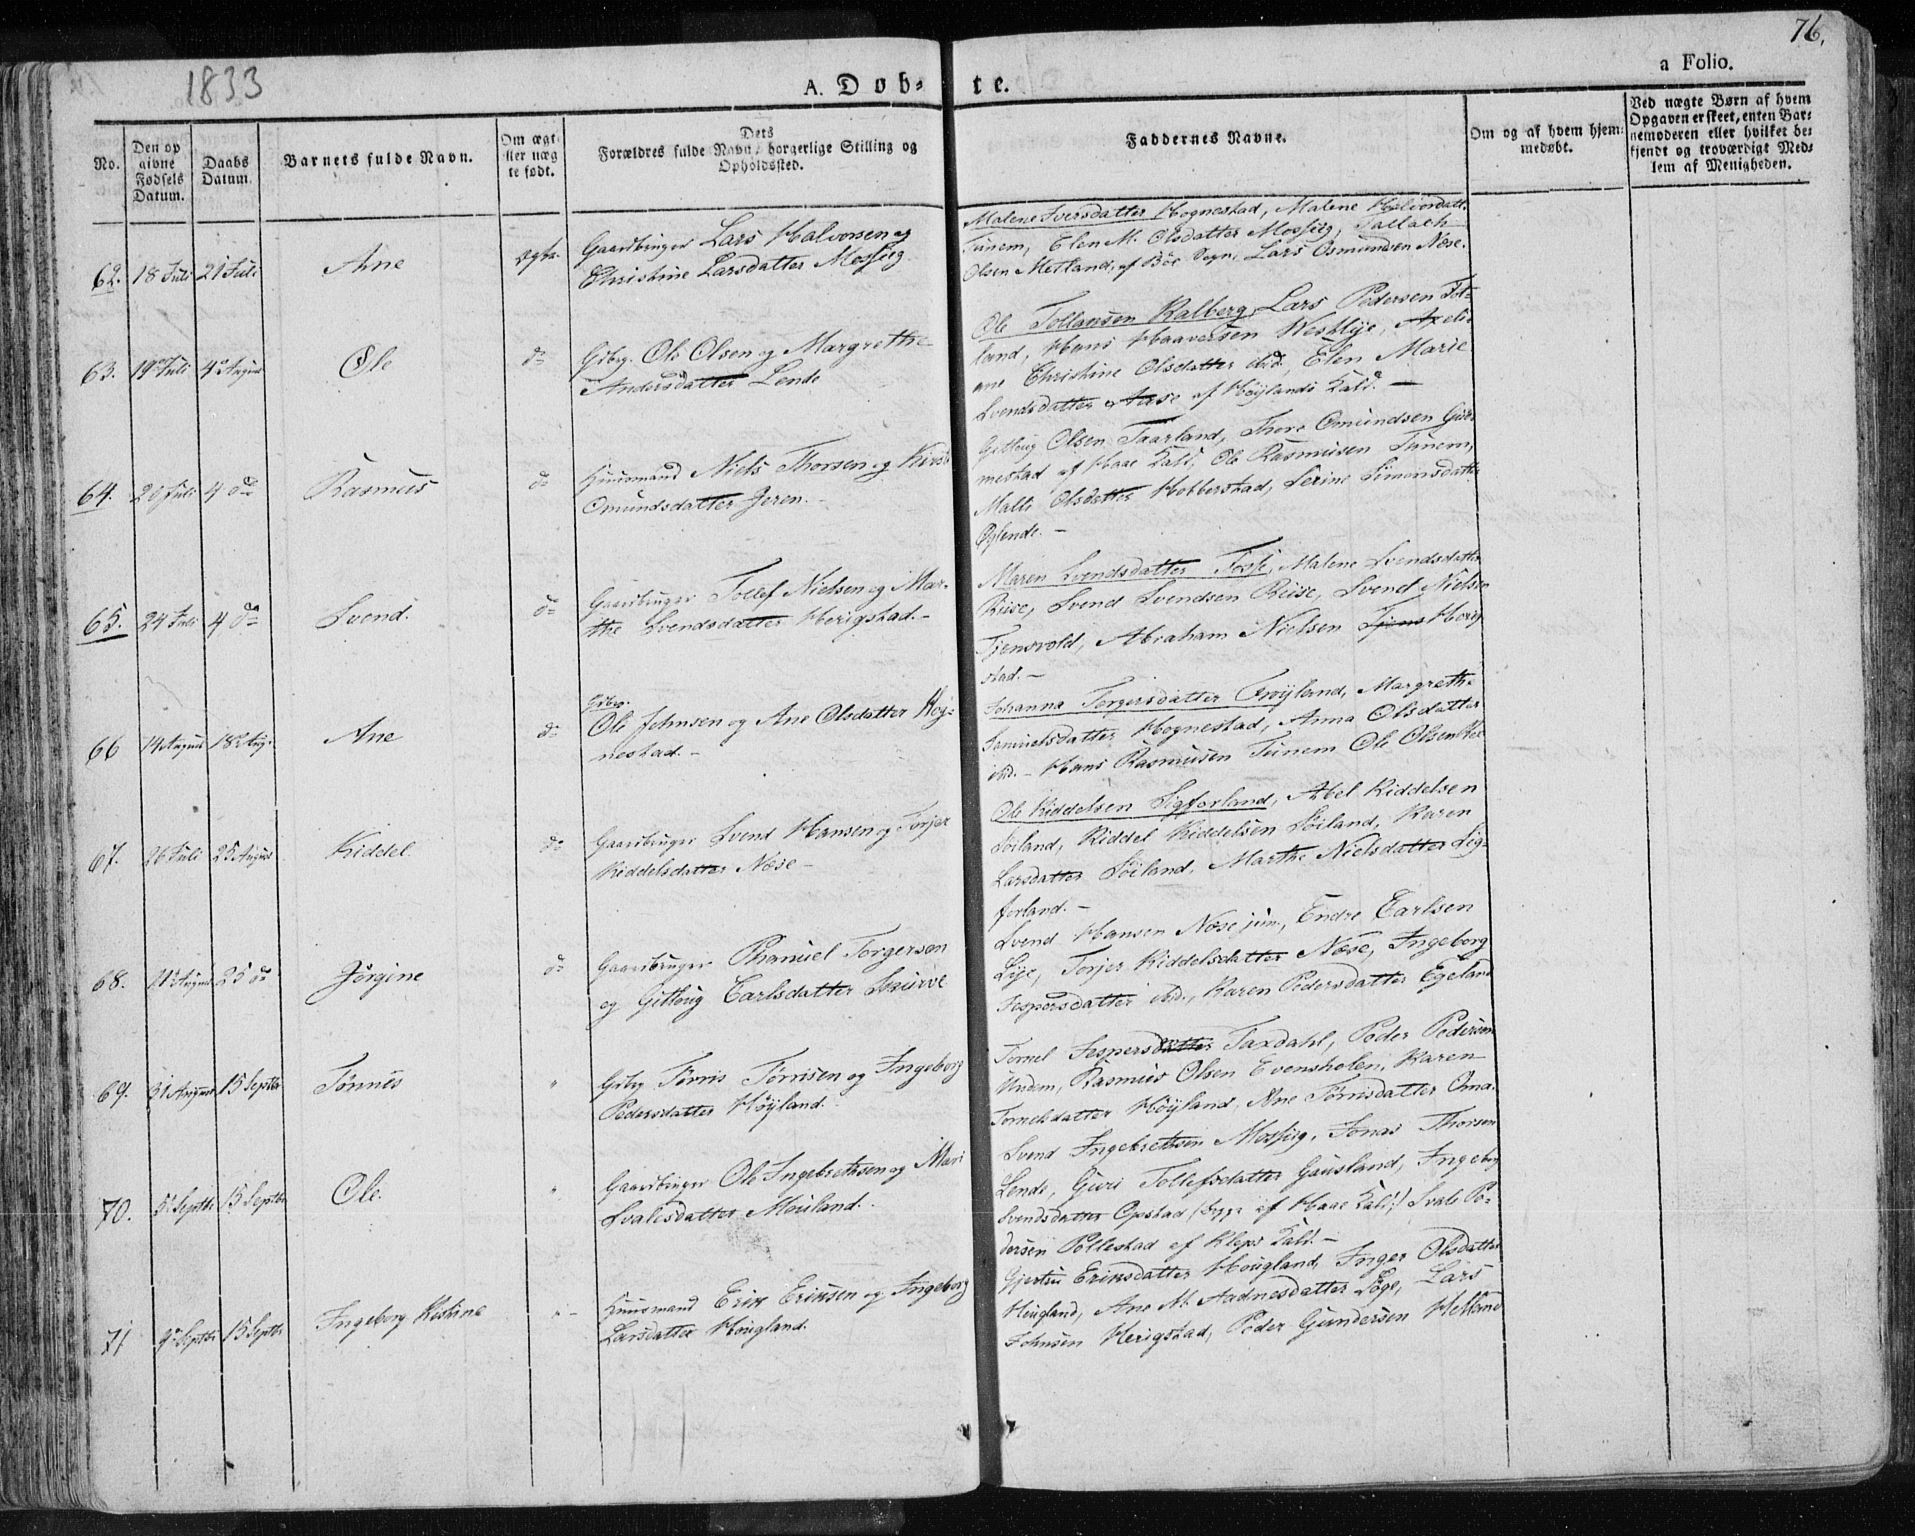 76.
1833
A. Døb-te.
a Folio.
No.
Den op
givne
Fødsels
Datum.
Daabs
Datum.
Barnets fulde Navn.
Om ægt
eller næg
te født.
Dets
Forældres fulde Navn, borgerlige Stilling og
Opholdssted.
Faddernes Navne.
Om og af hvem hjem-
medøbt.
Ved nægte Børn af hvem
Opgaven er skeet, enten Bar-
nemoderen eller hvilket be-
kjendt og troværdigt Med-
lem af Menigheden.
62. 18 Juli 21 Juli Ane ægte Gaardbruger Lars Halvorsen og
Christine Larsdatter Mossig
Malene Iversdatter Hognestad, Malene Halvordatt.
Tunem, Elen M. Olsdatter Mossig, Tallach
Olsen Metland, af Böe Sogn, Lars Osmundsen Næse.
63. 19 Juli 4 August Ole do Gdbrg. Ole Olsen og Margrethe
Andersdatter Lende
Ole Tollaksen Kalberg, Lars Pedersen Tot-
land, Hans Haaversen Westlye, Axeli-
ane Christine Olsdatter ibid, Elen Marie
Svendsdatter Aase af Höylands Kald. —
64. 20 Juli 4 do Rasmus do Huusmand Niels Thorsen og Kirsti
Omundsdatter Jeren. -
Gitlaug Olsen Taarland, Thore Omundsen Gud-
mestad af Haae Kald, Ole Rasmusen Tunem,
Malli Olsdatter Hobberstad, Serine Simonsdatter
Öglende. -
65. 24 Juli 4 do Svend. do Gaardbruger Tollef Nielsen og Mar-
the Svendsdatter Herigstad. -
Maren Svendsdatter Tosse, Malene Svendsdatter
Riise, Svend Svendsen Riise, Svend Nielsen
Tjensvold, Abraham Nielsen Tjens Herig
stad. -
66 14 August 18 Aug. Ane do Gdbrg.
Ole Johnsen og Ane Olsdatter Hog-
nestad. -
Johanna Torgersdatter Fröyland, Margrethe
Samuelsdatter Hognestad, Anna Olsdatter
ibd. - Hans Rasmusen Tunem Ole Olsen
67. 26 Juli 25 August Kiddel. do Gaardbruger Svend Hansen og Torjer
Kiddelsdatter Næse -
Ole Kiddelsen Sigforland, Abel Kiddelsen
Söiland, Kiddel Kiddelsen Söiland, Karen
Larsdatter Söiland, Marthe Nielsdatter Sig-
forland. -
68. August 25 do Jörgine do Gaardbruger Phanuel Torgersen
og Gitlaug Carlsdatter Skurve
Svend Hansen Næse jun, Endre Carlsen
Lye, Torjer Kiddelsdatter Næse, Ingeborg
Jespersdatter ibd., Karen Pedersdatter Egeland
69. 31 August 15 Septbr Tönnes " Gdbrg Törris Törrisen og Ingeborg
Pedersdatter Höyland.
Tornel Jespersdatter Taxdahl, Peder Pedersen
Undem, Rasmus Olsen Evensholen, Karen
Tornelsdatter Höyland, Ane Törrisdatter Oma.
70. 5 Septbr 15 Septbr Ole. " Gaardbruger Ole Ingebretsen og Mari
Svalesdatter Mouland.
Svend Ingebretsen Mossig, Jonas Thorsen
Lende, Guri Tollefsdatter Gausland, Ingeborg
Svendsdatter Opstad (begge af Haae Kald) Svale Pe-
dersen Pollestad af Kleps Kald. -
71 9 Septbr 15 Septbr Ingeborg Kistine " Huusmand Erik Eriksen og Ingeborg
Larsdatter Hougland.
Gjertru Eriksdatter Hougland, Inger Olsdatter
Hougland, Ane M. Aadnesdatter Löge, Lars
Johnsen Herigstad, Peder Gundersen Hetland